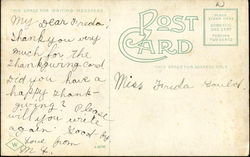 THIS SPACE FOR WRITING MESSAGES
My Dear Freda,
Thank you very
much for the
Thanksgiving Card
Did you have a
happy Thank-
giving? Please
will you write
again. Good by
Love from
POST
CARD
THIS SPACE FOR ADDRESS ONLY
PLACE
STAMP HERE
DOMESTIC
ONE CENT
FOREIGN
TWO CENTS
Miss Freda